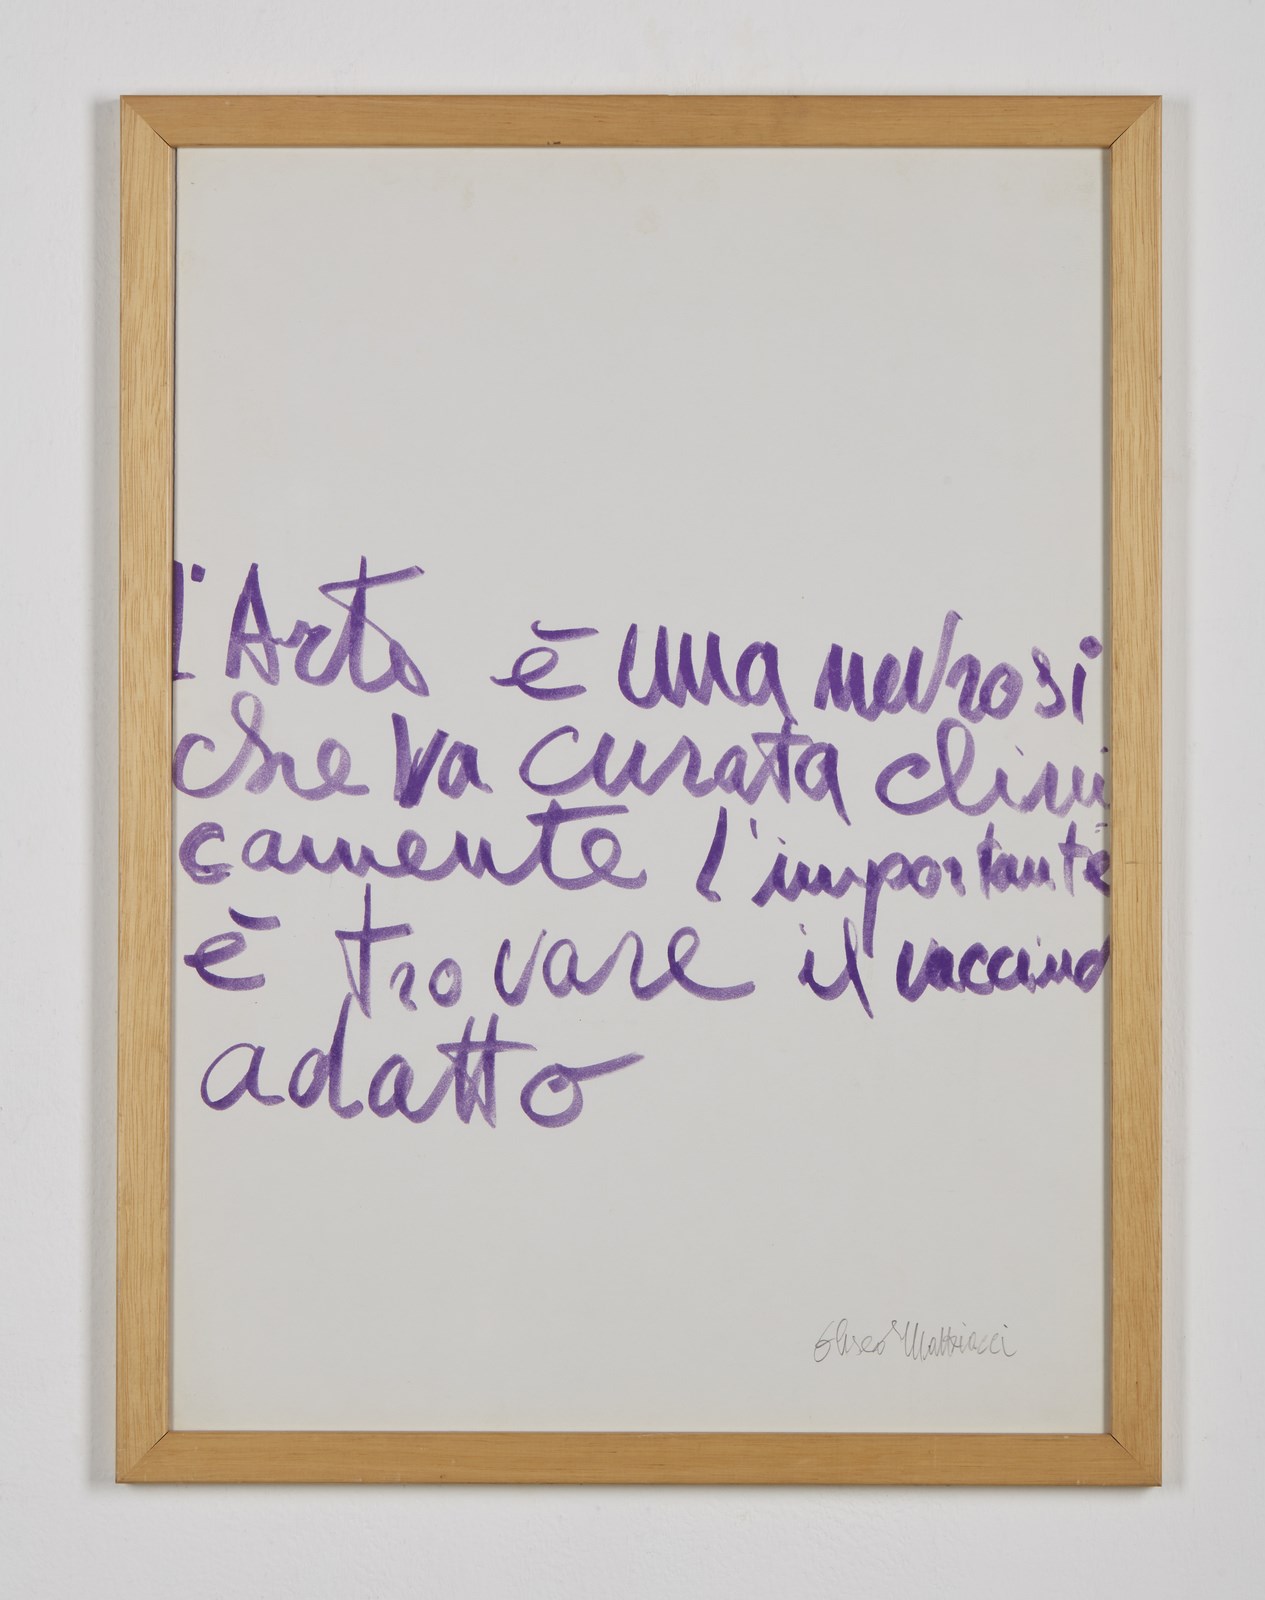 l'Arte è una nevrosi
che va curata clini
camente l'importante
è trovare il vaccino
adatto
Eliseo Mattiacci